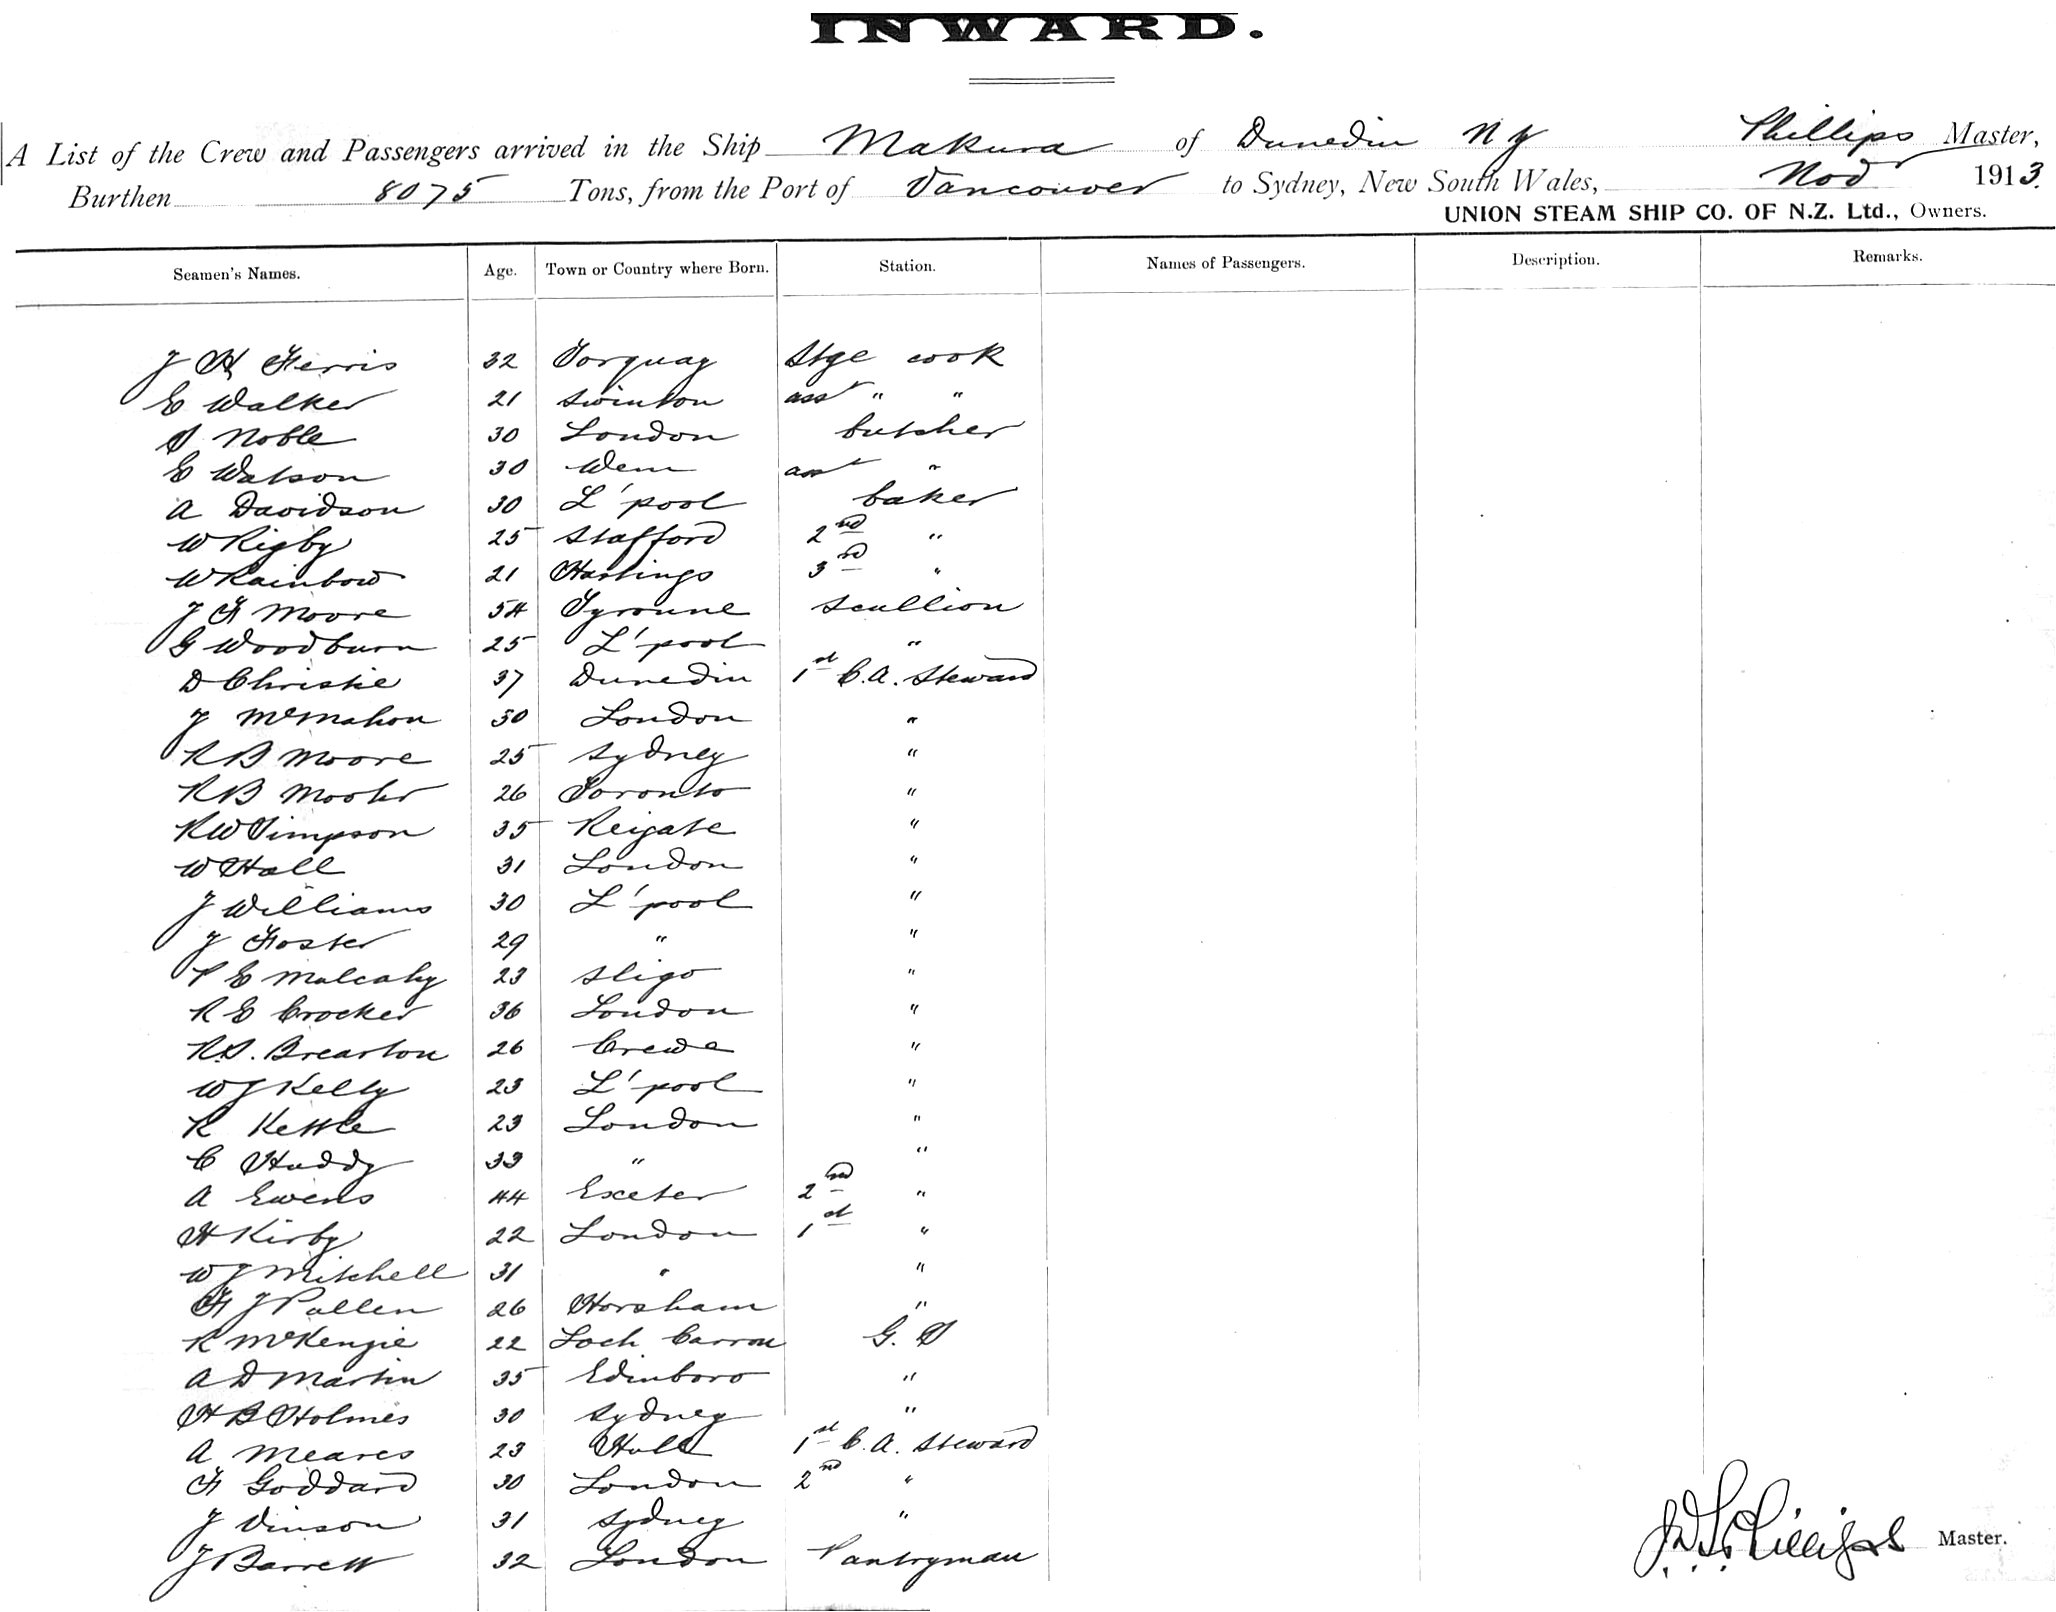 INWARD.
A List of the Crew and Passengers arrived in the Ship Makura of Dunedin N Z Phillips Master,
Burthen 8075 Tons, from the Port of Vancouver to Sydney, New South Wales, Novr 1913.
UNION STEAM SHIP CO. OF N.Z. Ltd., Owners.
Seamen's Names. Age. Town or Country where Born. Station. Names of Passengers. Description. Remarks.
J H Ferris 32 Torquay Stge cook
E Walker 21 Swinton asst " "
S Noble 30 London butcher
E Watson 30 Wem asst "
A Davidson 30 L'pool baker
W Rigby 25 Stafford 2nd "
W Rainbow 21 Hastings 3rd "
J F Moore 54 Tyronne Scullion
G Woodburn 25 L'pool "
D Christie 37 Dunedin 1st C.A. Steward
J McMahon 30 London "
R B Moore 25 Sydney "
R B 26 Toronto "
R W Simpson 35 Reigate "
W Hall 31 London "
J Williams 30 L'pool "
J Foster 29 " "
P E Mulcahy 23 Sligo "
R E Crocker 36 London "
R.S. Brearton 26 Crewe "
W J Kelly 23 L'pool "
R Kettle 23 London "
C Huddy 33 " "
A Ewens 44 Exeter 2nd "
H Kirby 22 London 1st "
W J Mitchell 31 " "
F J Pullen 26 Horsham "
R McKenzie 22 Loch Carron G. S
A D Martin 35 Edinboro "
H B Holmes 30 Sydney "
A Meares 23 Hull 1st C. A. Steward
F Goddard 30 London 2nd "
J Vinson 31 Sydney "
J Barrett 32 London Pantryman
J.D.S. Phillips Master.